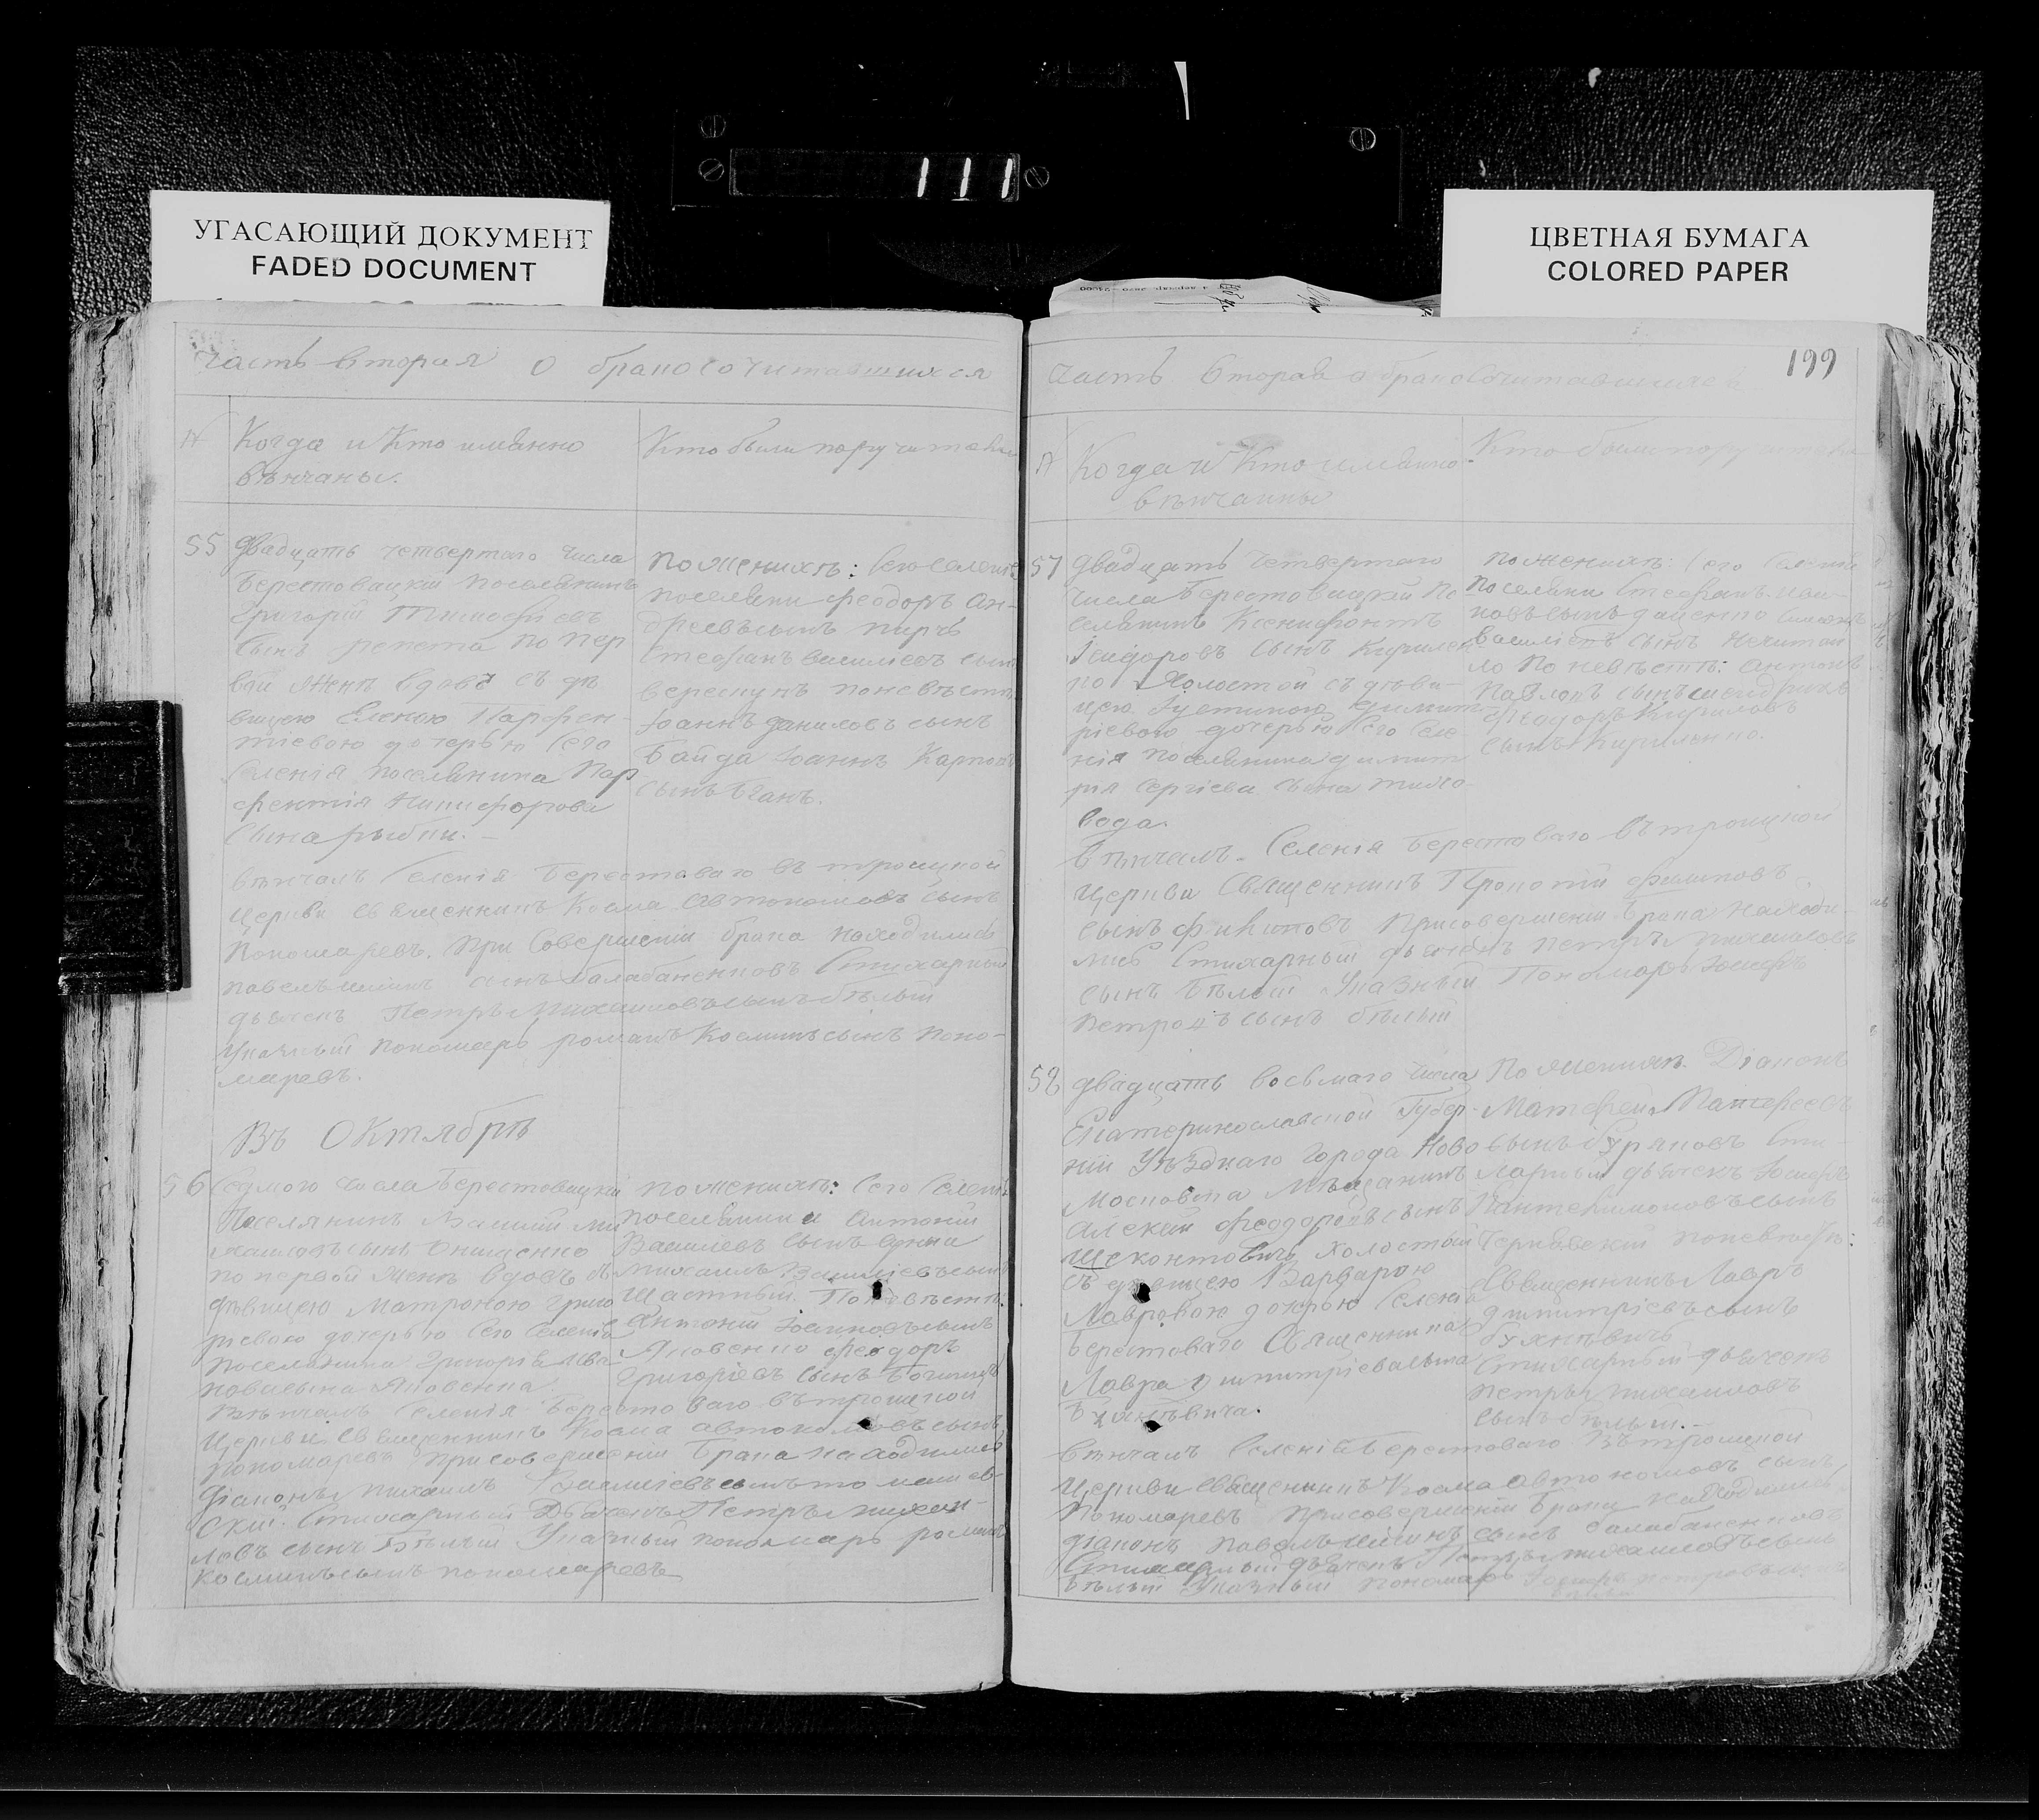 111
УГАСАЮЩИЙ ДОКУМЕНТ
FADED DOCUMENT
ЦВЕТНАЯ БУМАГА
COLORED PAPER
Часть вторая о бракосочитавшихся
Когда и Кто имянно
вѣнчаны.
Кто были поручители
55 двадцать четвертаго числа
Берестовацкий поселянинъ
Григорий Тимофѣевъ
сынъ репета по пер
вой женѣ вдовъ съ дѣ
вицею Еленою Парфен-
тіевою дочерью сего
селенія поселянина Пар
фентія Никифорова
сына рыбки.
по женихѣ: сего селенія
поселяни феодоръ Ан-
дреевъ сынъ
Стефанъ василіевъ сынъ
вереснукъ по невѣстѣ
Іоаннъ даниловъ сынъ
Байда Іоаннъ Карповъ
сынъ
вѣнчалъ Селенія Берестоваго въ троицкой
Церкви священникъ Косма Автономовъ сынъ
Пономаревъ. При Совершеніи брака находились
павелъ сынъ Балабаненковъ Стихарный
дьячекъ Петръ Михаиловъ сынъ бѣлый
Указный пономарь романъ Косминъ сынъ поно-
маревъ.
Въ Октябрѣ
56 Седмого числа Берестовацкий
Поселянинъ Ми
хаиловъ сынъ Онищенко
по первой женѣ вдовъ съ
дѣвицею Матроною Григо
ріевою дочерью сего селенія
поселянина Григорія
сына Яковенка
по женихѣ: сего селенія
поселянини Антоній
Василіевъ сынъ
михаилъ Василіевъ сынъ
Щастный. По невѣстѣ:
Антоній Іоанновъ сынъ
Яковенко феодоръ
Григоріевъ сынъ
Вѣнчалъ Селенія берестоваго въ троицкой
Церкви священникъ Косма автономовъ сынъ
пономаревъ при совершеніи Брака находились
діаконъ михаилъ Василіевъ сынъ
Стихарный Дьячекъ Петръ михаи-
ловъ сынъ Бѣлый Указный пономарь романъ
Косминъ сынъ пономаревъ
199
Часть вторая о бракосочитавшихся
Когда и Кто имянно
вѣнчанны
Кто были поручители
57 двадцать четвертаго
числа Берестовацкий по
селянинъ Ксенифонтъ
Ісидоровъ сынъ Кирилен
ко Холостой съ дѣви-
цею Іустиною Димит
ріевою дочерью сего селе
нія поселянина димит
рія сергіева сына
вода.
по женихѣ: сего селенія
поселяни Стефанъ Иван
новъ сынъ
василіевъ сынъ
ло по невѣстѣ: антонъ
Павловъ сынъ
Феодоръ Кириловъ
сынъ Кириленко.
вѣнчалъ Селенія берестоваго въ троицкой
церкви священникъ Прокопій филиповъ
сынъ филиповъ при совершеніи брака находи-
лись Стихарный дьячекъ Петръ михаиловъ
сынъ Бѣлый Указный Пономарь Іосифъ
петровъ сынъ бѣлый
58 двадцать восьмаго числа
Екатеринославской Губер-
ніи Уѣзднаго Города Ново
Московска Мѣщанинъ
Алексій феодоровъ сынъ
холостой
съ дѣвицею Варварою
Лавровою дочерью селенія
берестоваго Священника
Лавра димитріева сына
По женихѣ. Діаконъ
Матфей
сынъ Сти-
харный дьячекъ Іосифъ
Пантелимоновъ сынъ
Чернявский по невѣстѣ:
Священникъ Лавръ
димитріевъ сынъ
Стихарный дьячекъ
петръ михаиловъ
сынъ бѣлый.
вѣнчалъ селенія Берестоваго въ троицкой
церкви священникъ Косма автономовъ сынъ
Пономаревъ при совершеніи Брака находились
діаконъ павелъ сынъ балабаненковъ
Стихарный дьячекъ Петръ михаиловъ сынъ
бѣлый Указный пономарь Іосифъ петровъ сынъ